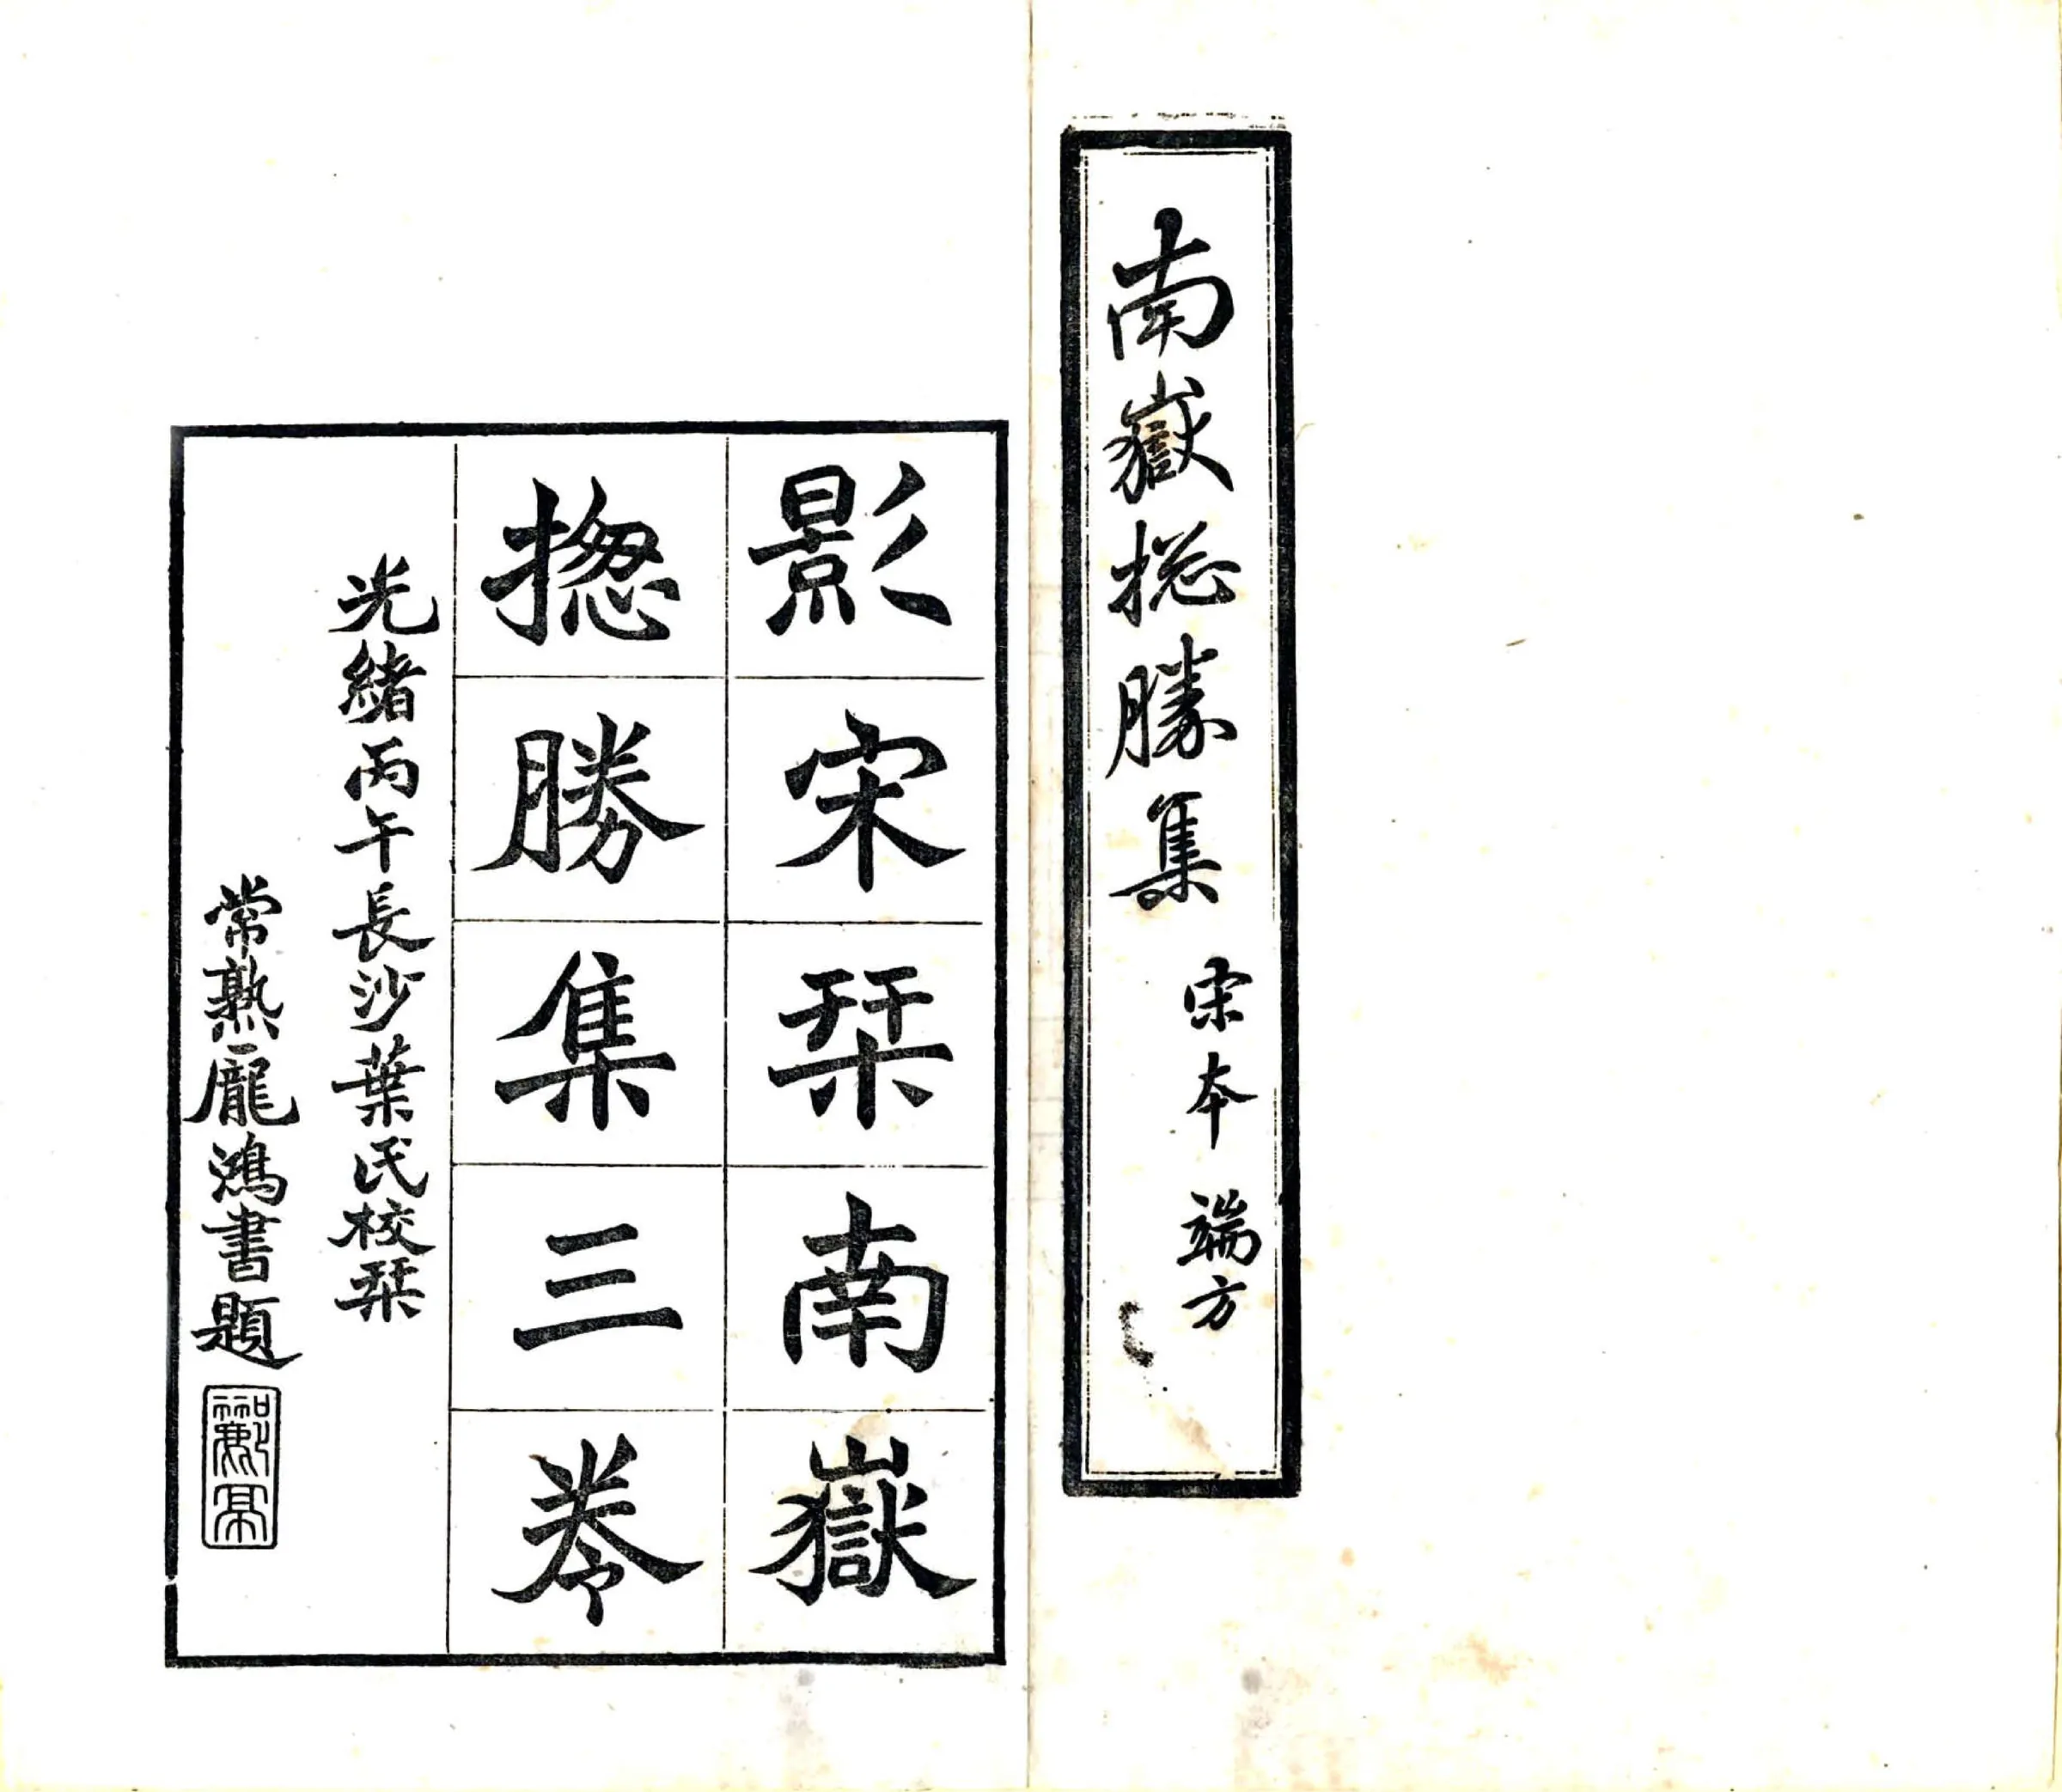 南嶽揔勝集
宋本 端方
影宋栞南嶽
揔勝集三卷
光緒丙午長沙葉氏校栞
常熟龐鴻書題